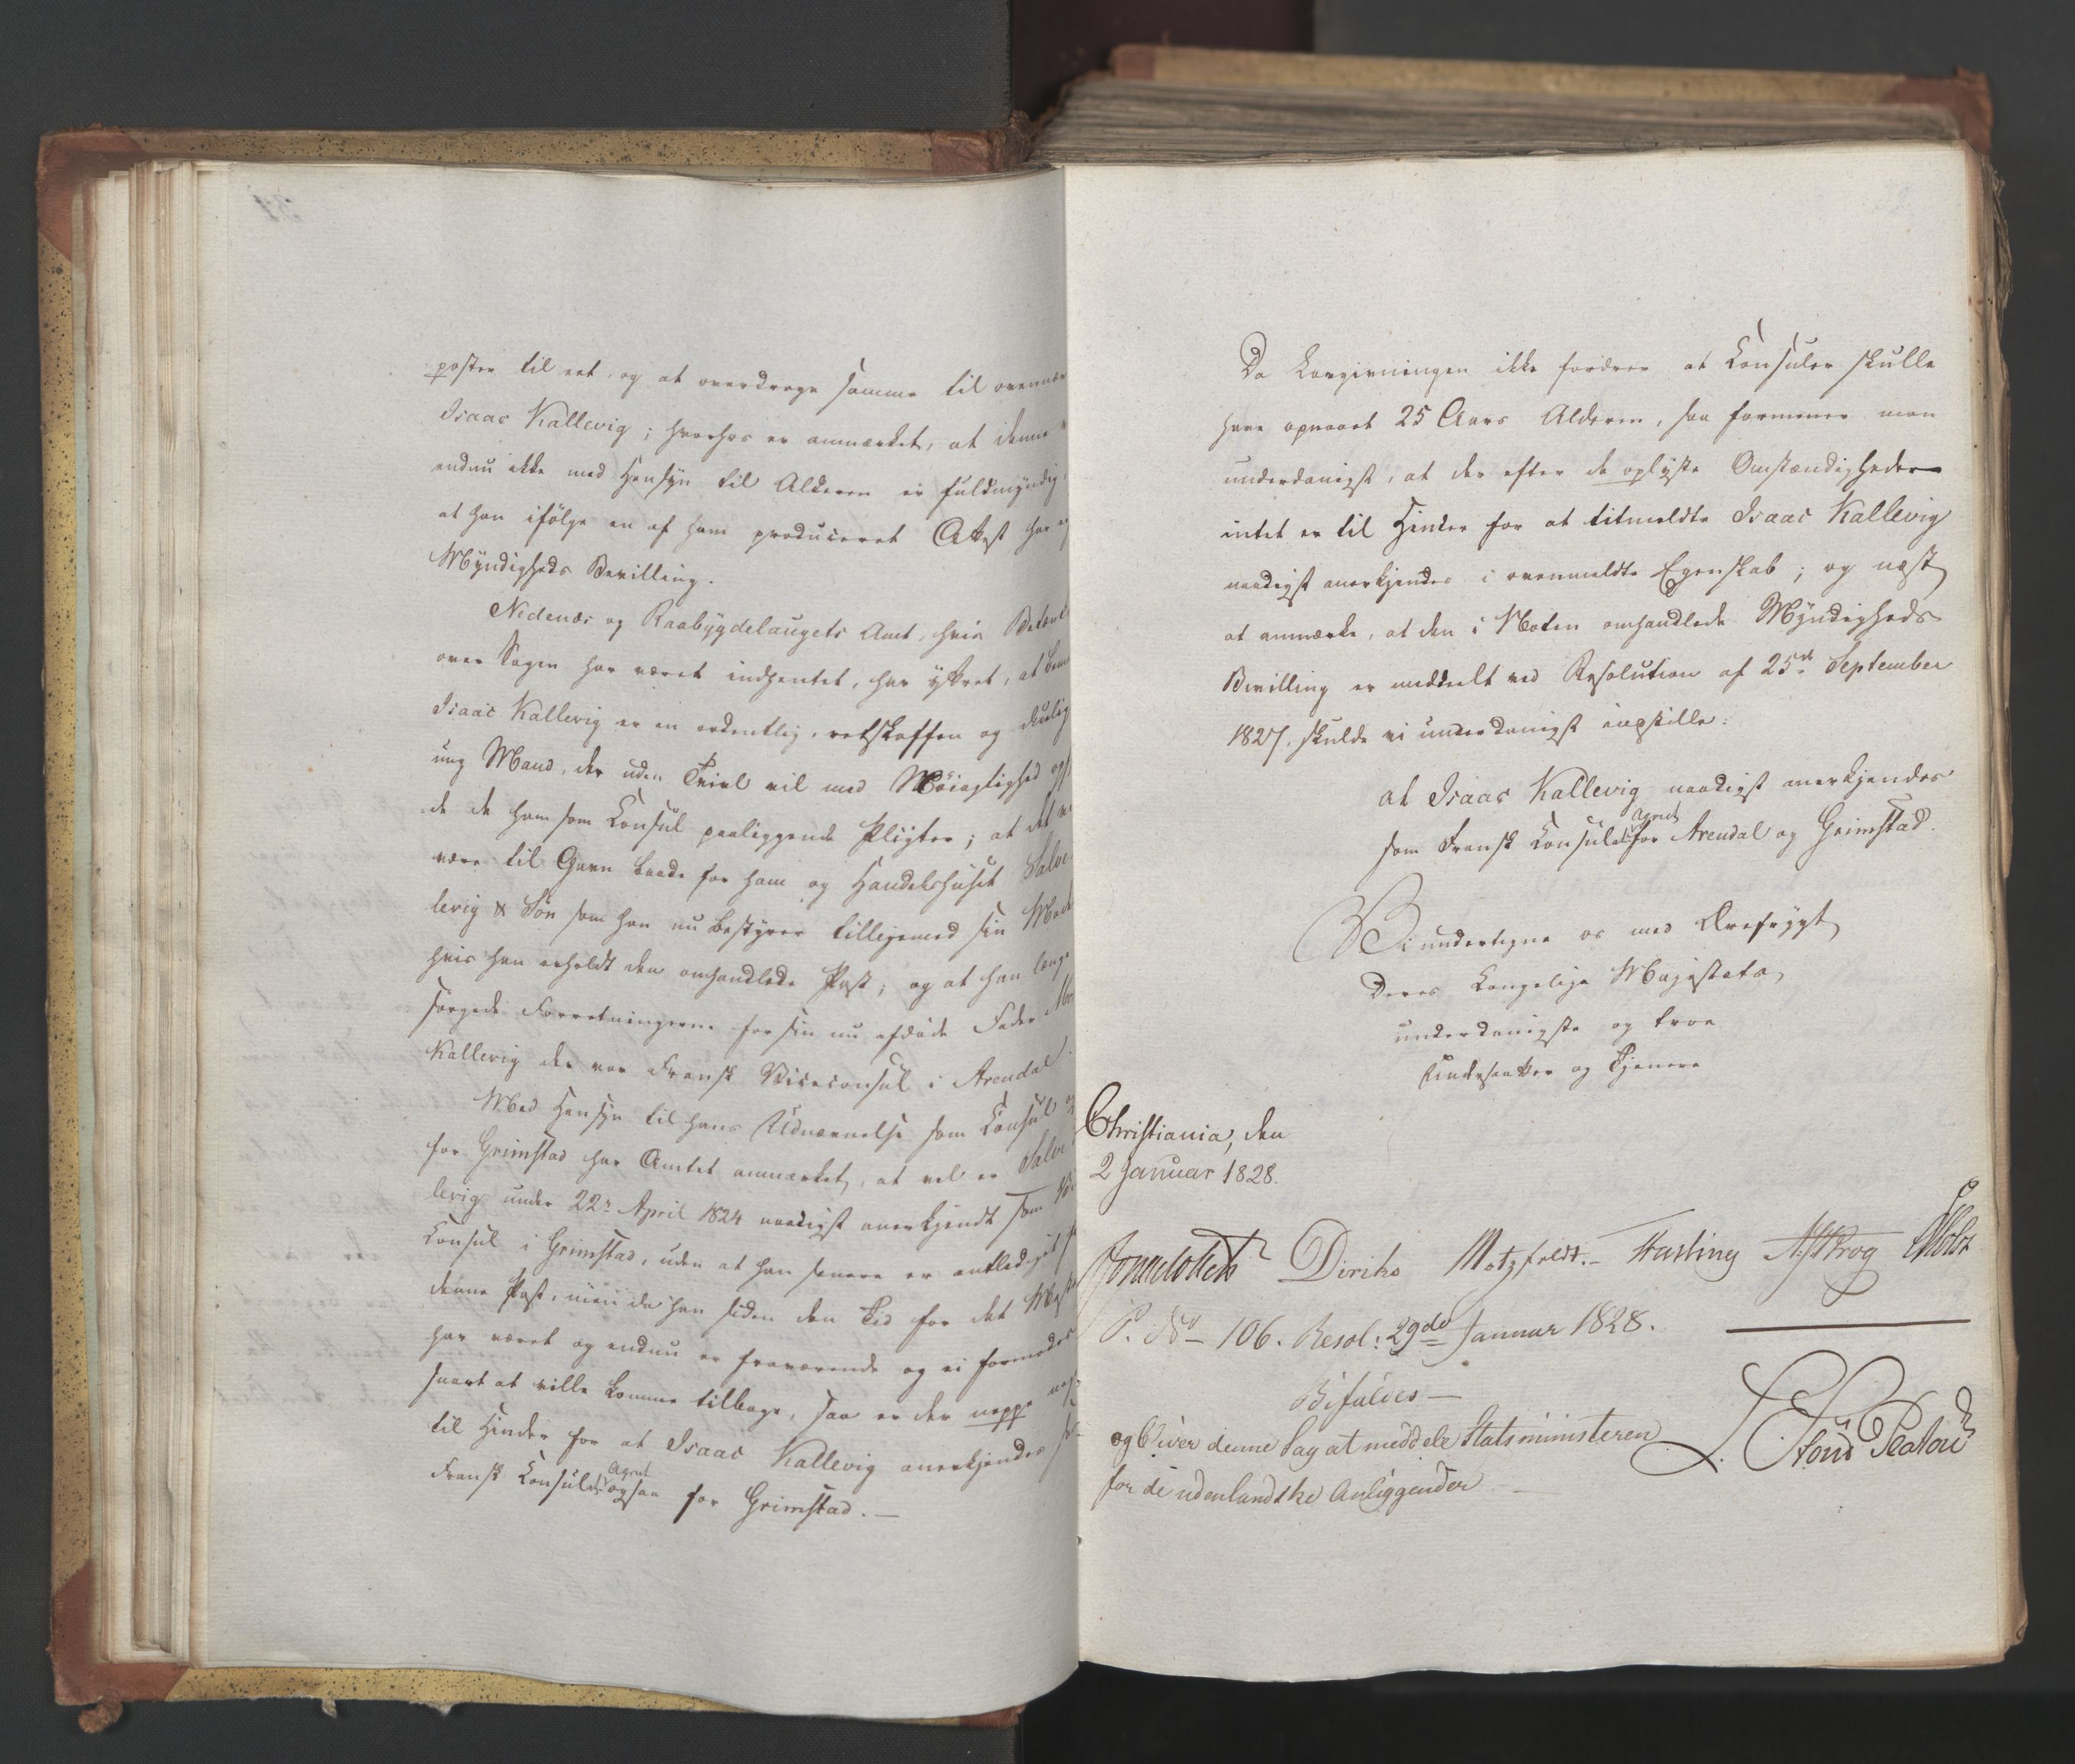 poster til eet, og at overdrage samme til ovennæv
Isaac Kallevig; hvorhos er anmærket, at denne
endnu ikke med Hensyn til Alderen er fuldmyndig,
at han ifölge en af ham produceret Attest har
Myndigheds Bevilling.
Nedenæs og Raabygdelaugets Amt, hvis Betænk
over Sagen har været indhentet, har yttret, at bem
Isaac Kallevig er en ordentlig, retskaffen og duelig
ung Mand, der uden Tvivl vil med Nöiagtighed opf
de de ham som Consul paaliggende Pligter; at det v
være til Gavn baade for ham og Handelshuset Salve
levig & Sön som han nu bestyrer tilligemed sin Mod
hvis han erholdt den omhandlede Post; og at han længe
sørgede Forretningerne for sin nu afdöde Fader
Kallevig der var Fransk Viceconsul i Arendal.
Med Hensyn til hans Udnævnelse som Consul
for Grimstad har Amtet anmærket, at vel er Salve
levig under 22. April 1824 naadigst anerkjendt som
Consul i Grimstad, uden at han senere er entlediget
denne Post, men da han siden den Tid for det Meste
har været og endnu er fraværende og ei formodes
snart at ville komme tilbage, saa er der neppe
til Hinder for at Isaac Kallevig anerkjendes
Agent
Fransk Consulär ogsaa for Grimstad. —
Da Lovgivningen ikke fordrer at Consuler skulle
have opnaaet 25 Aars Alderen, saa formener man
underdanigst, at der efter de oplyste Omstændigheder
intet er til Hinder for at titmeldte Isaac Kallevig
naadigst anerkjendes i ovenmeldte Egenskab; og næst
at anmærke, at den i Noten omhandlede Myndigheds
Bevilling er meddeelt ved Resolution af 25de September
1827, skulde vi underdanigst indstille:
at Isaac Kallevig naadigst anerkjendes
Agent
som Fransk Consulär for Arendal og Grimstad.
Vi undertegne os med Ærefrygt
Deres Kongelige Majestæts
underdanigste og troe
Undersaatter og Tjenere
Christiania, den
2 Januar 1828.
Jonas Collett Diriks Motzfeldt. Fasting Holst
P. No 106. Resol: 29de Januar 1828.
Bifaldes —
og bliver denne Sag at meddele Statsministeren
for de udenlandske Anliggender —